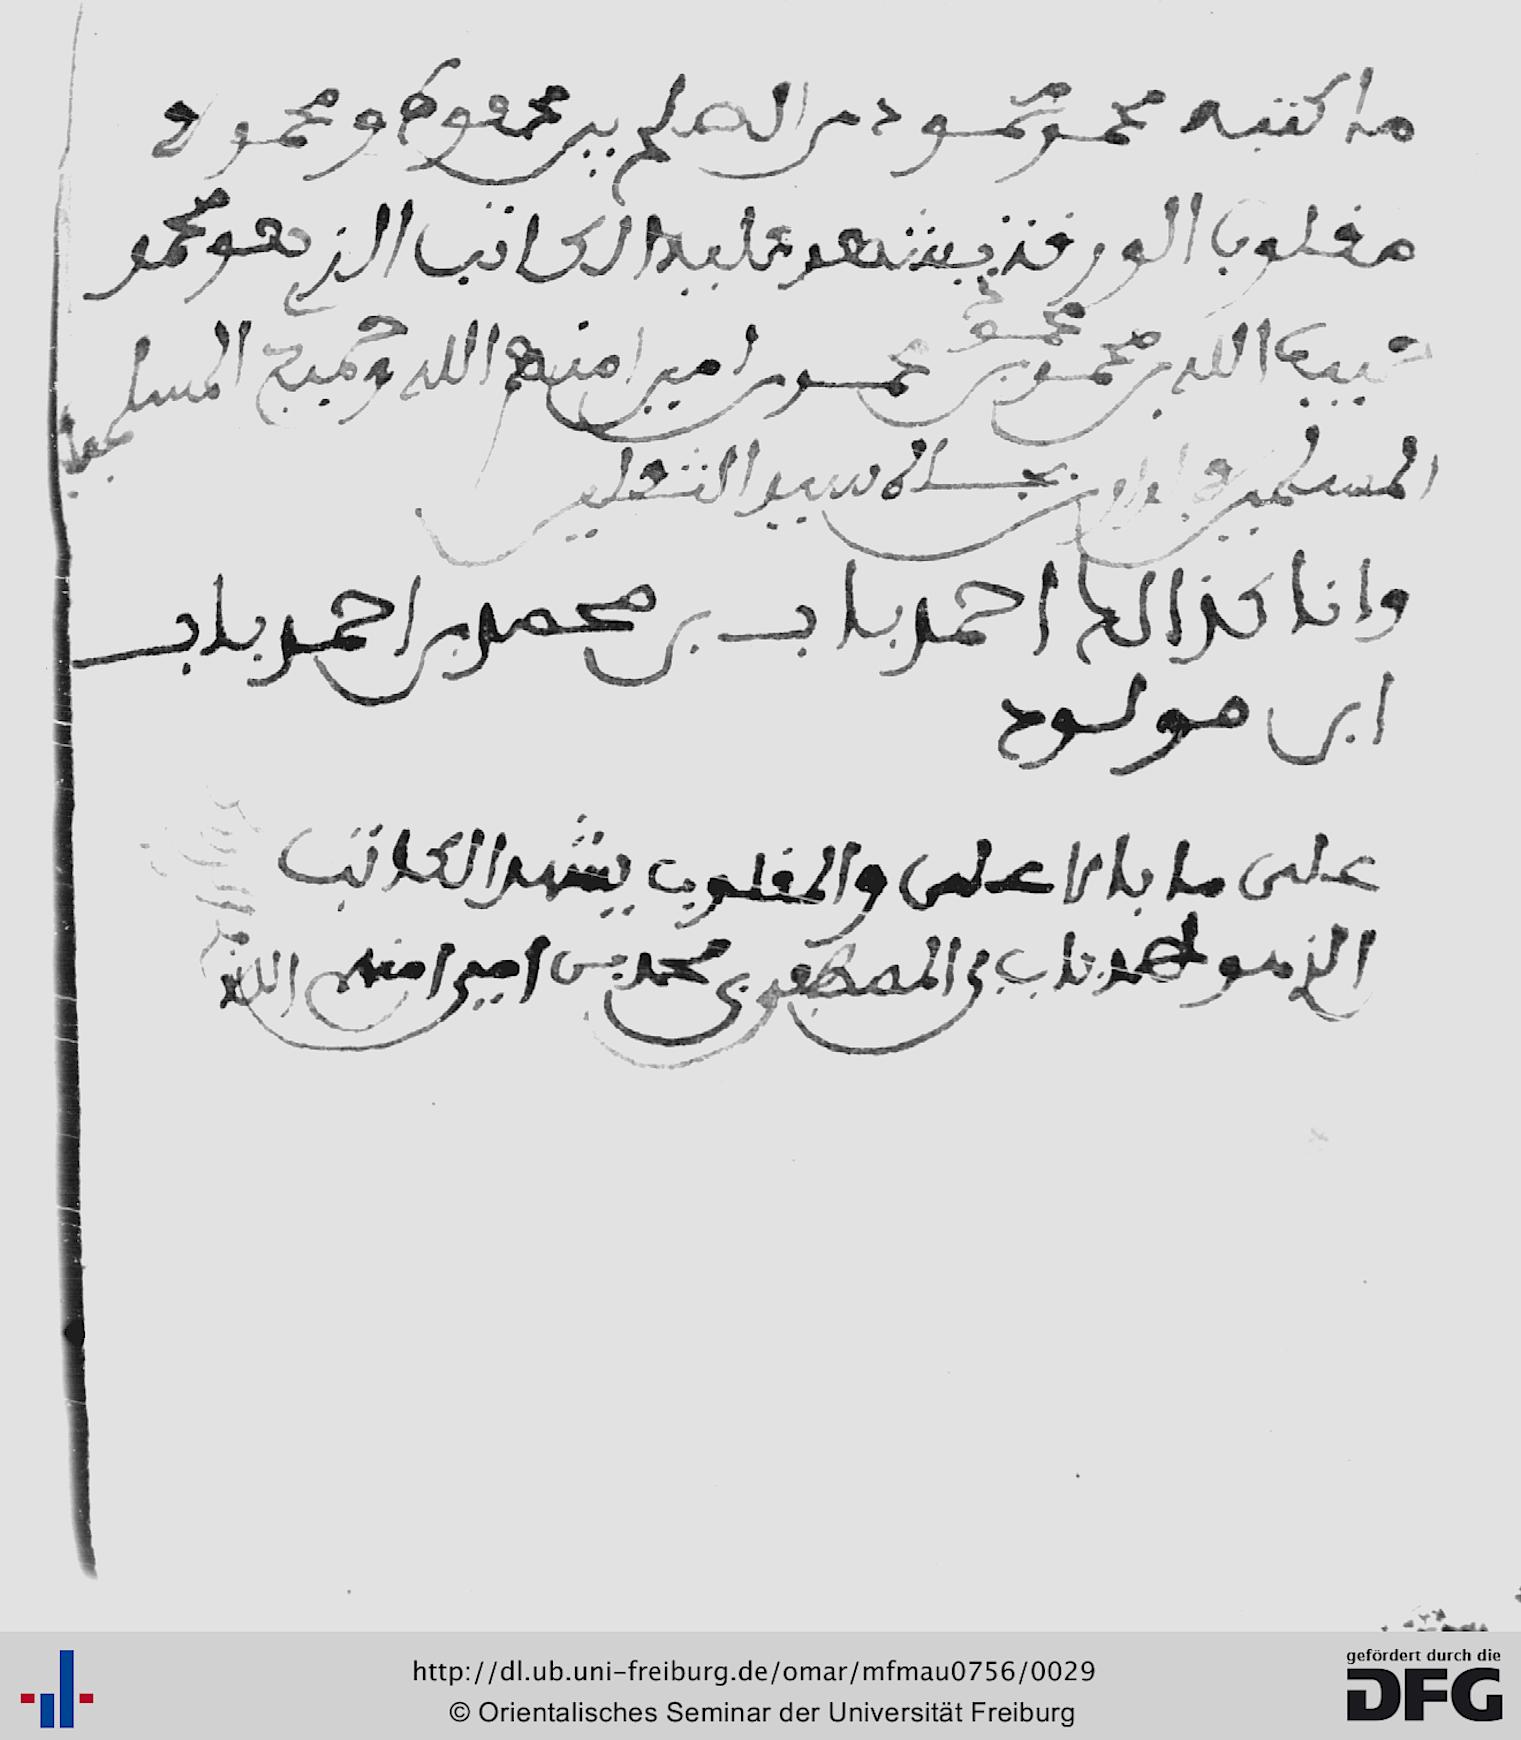 ما كتبه محمو محمود من الصلح بين محموم ومحمود
مقلوب الورقة يشهد عليه الكاتب الذ هو محمو
حبيب الله بن محمود بن محمود بن امير امنهم الله وجميع المسلـ
محمو
المسلمين بجاه سيد الثقلين
وانا كذالك احمد باب بن محمد بن احمد باب
ابن مولود
على ما بالاعلى والمقلوب يشهد الكاتب
الذ هو احمد باب بن المصطفى بن محمد بن امير امنهم الله
http://dl.ub.uni-freiburg.de/omar/mfmau0756/0029
© Orientalisches Seminar der Universität Freiburg
gefördert durch die
DFG